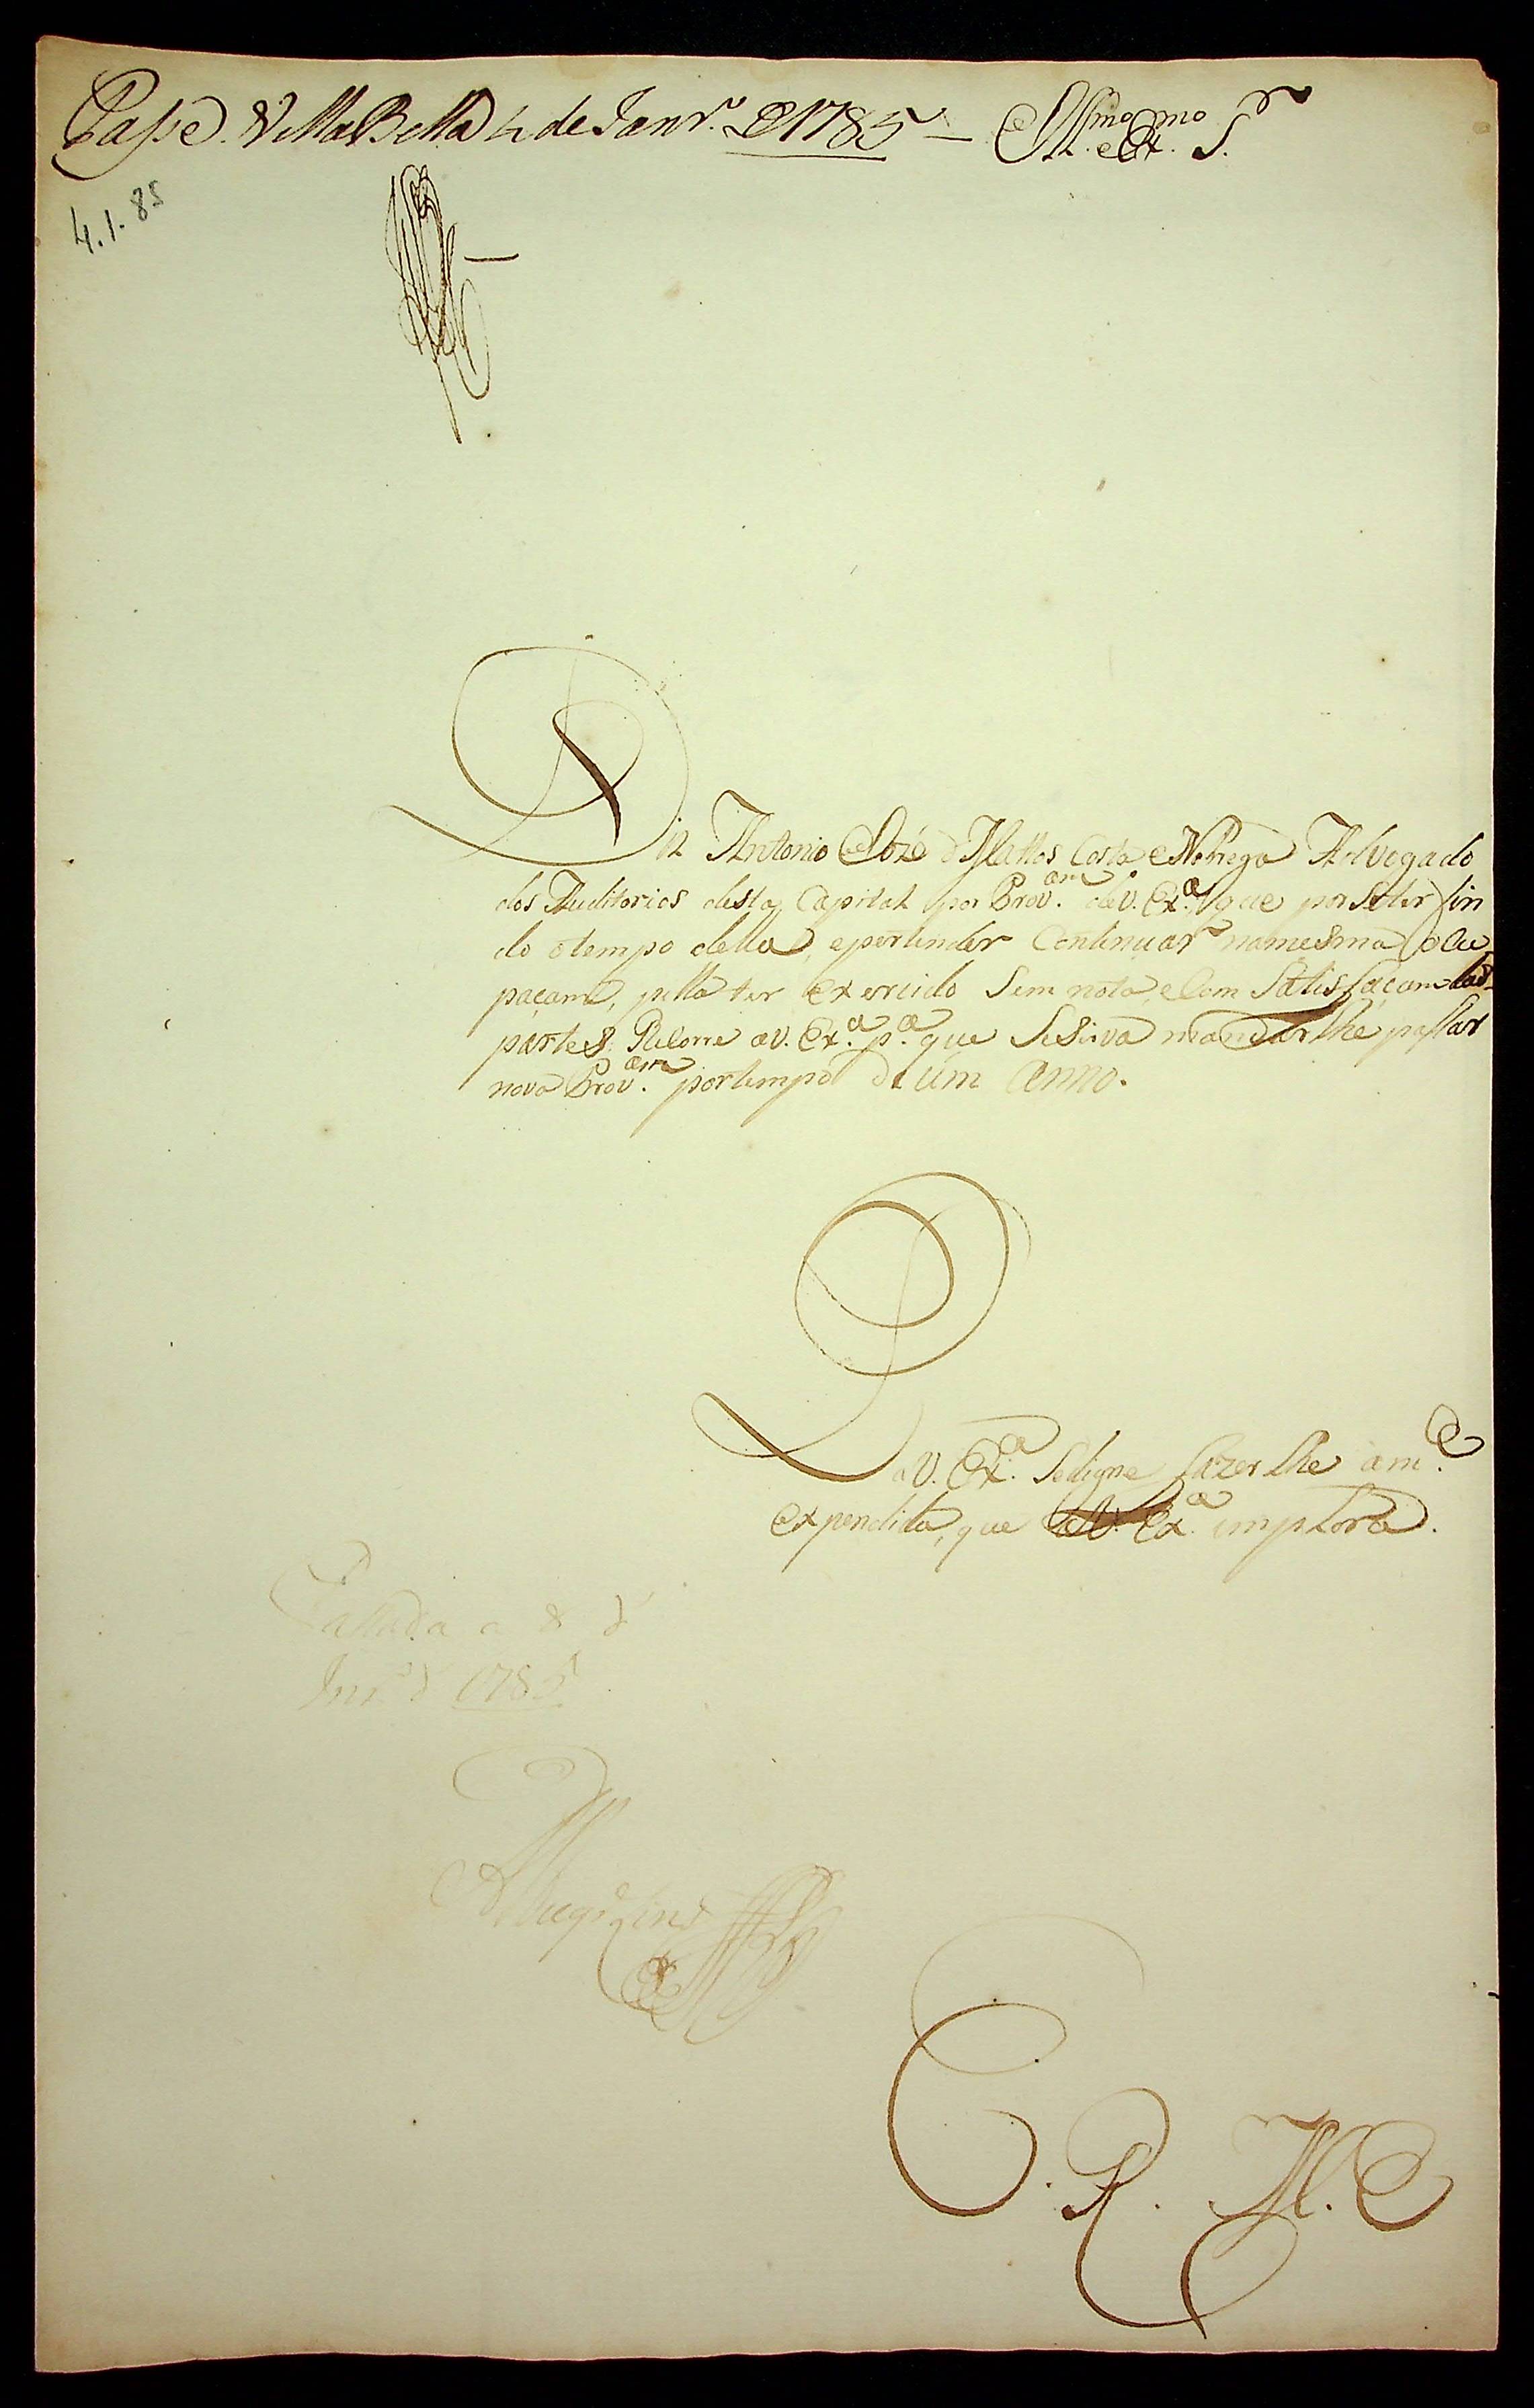 Passe. Villa Bella 4 de Janr.º de 1785 — Illmo. e Exmo. Sr.
4.1.85
Diz Antonio Jozé de Mattos Costa e Nobrega Advogado
dos Auditorios desta Capital por Prov.am de V. Ex.a, que por se ter fin
do o tempo della, e pertender Continuar na mesma Ocu
paçam, pella ter exercido Sem nota, e Com Satisfaçam das
partes. Recorre a V. Ex.a p.a que Se Sirva mandar lhe passar
nova Prov.am por tempo de um Anno.
P. a V. Ex.a Se digne fazer lhe a m.e
expendida, que a V. Ex.a implora.
Passada a 8 de
Janr.o de 1785
E. R. M.e